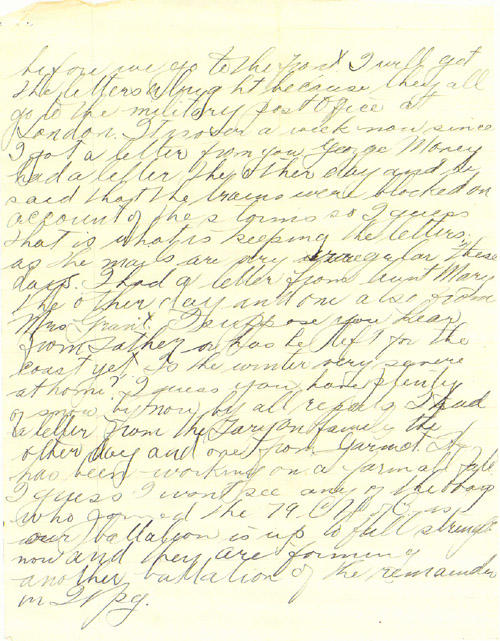 before we go to the front I will get
the letters alright because they all
go to the military post office at
London. It is over a week now since
I got a letter from you George Money
had a letter the other day and he
said that the trains were blocked on
account of the storms so I guess
that is what is keeping the letters
as the mails are very irregular these
days. I had a letter from Aunt Mary
the other day and one also from
Mrs Grant. I suppose you hear
from father or has he left for the
coast yet. Is the winter very severe
at home? I guess you have plenty
of snow by now by all reports. I had
a letter from the family the
other day and one from
has been working on a farm
I guess I wont see any of the boys
who joined the 79
our battalion is up to full strength
now and they are forming
another battalion of the remainder
in Wpg.